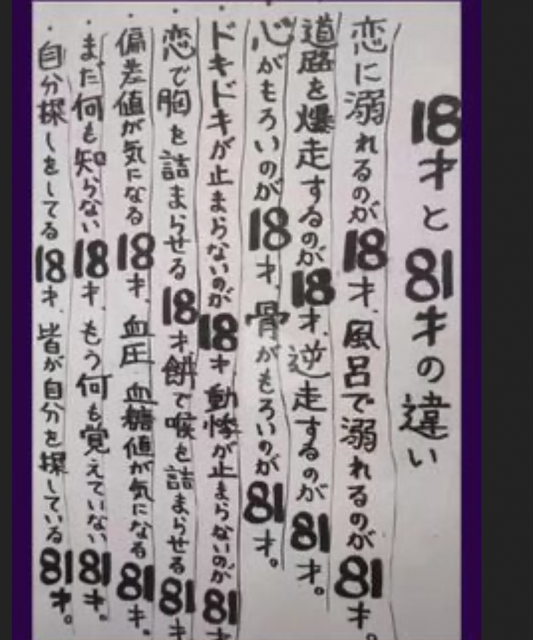 18才と81才の違い
恋に溺れるのが18才、風呂で溺れるのが81才。
道路を爆走するのが18才、逆走するのが81才。
心がもろいのが18才、骨がもろいのが81才。
ドキドキが止まらないのが18才 動悸が止まらないのが81才
恋で胸を詰まらせる18才 餅で喉を詰まらせる81才
偏差値が気になる18才、血圧、血糖値が気になる81才、
まだ何も知らない18才、もう何も覚えていない81才。
自分探しをしてる18才、皆が自分を探している81才。